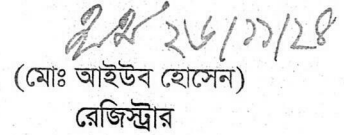 ২৬/১১/২৪
(মোঃ আইউব হোসেন)
রেজিস্ট্রার